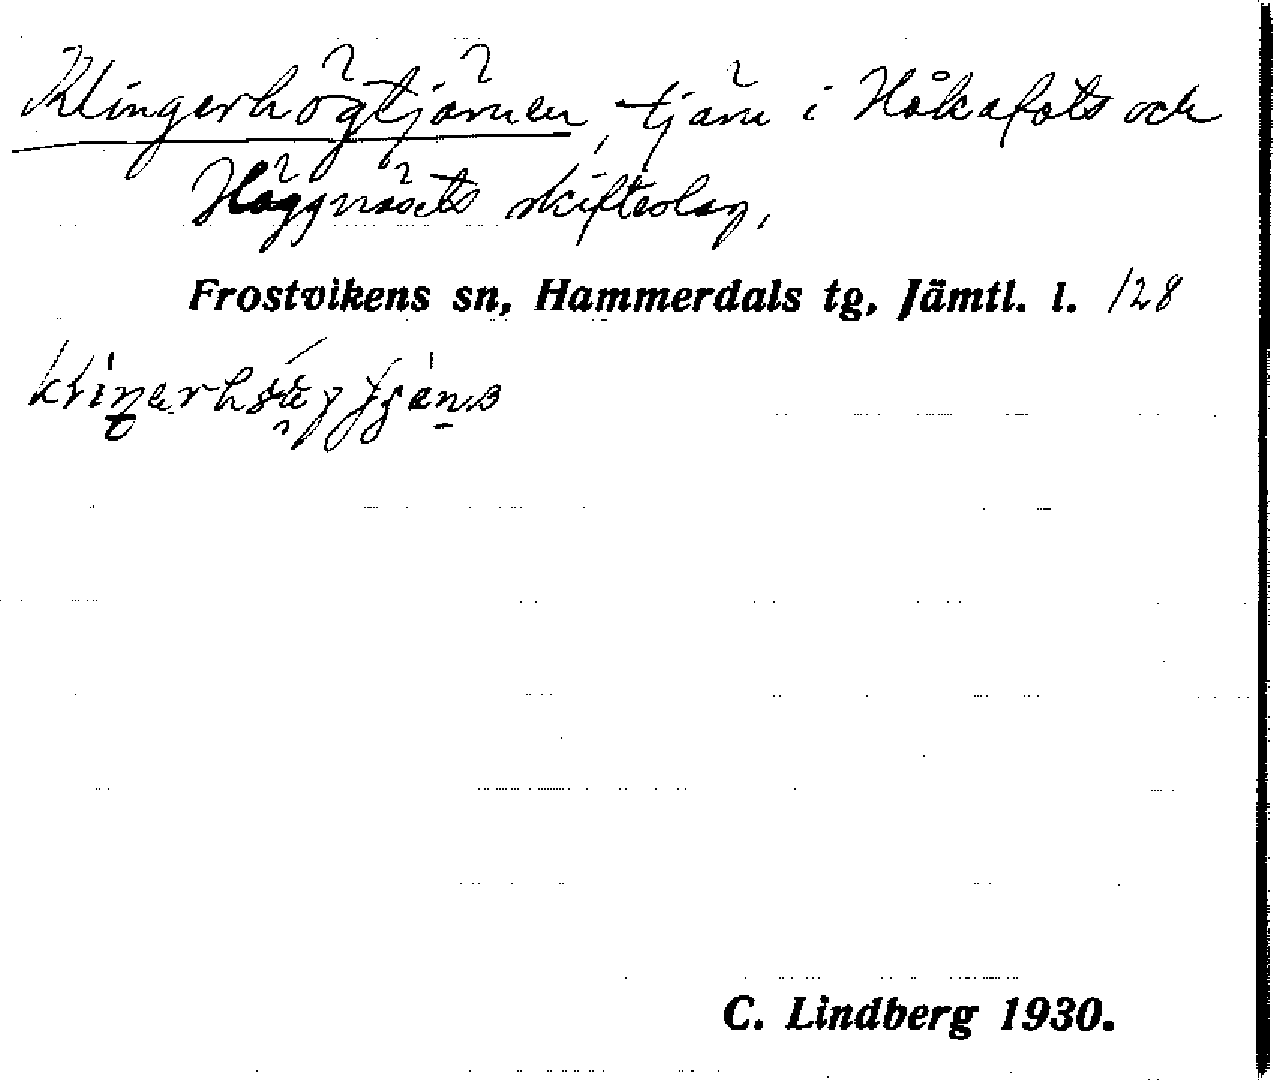 Klingerhögtjärnen, tjärn i Håkafots och
Häggnäsets skifteslag,
Frostvikens sn, Hammerdals tg, Jämtl. l. 128
C. Lindberg 1930.